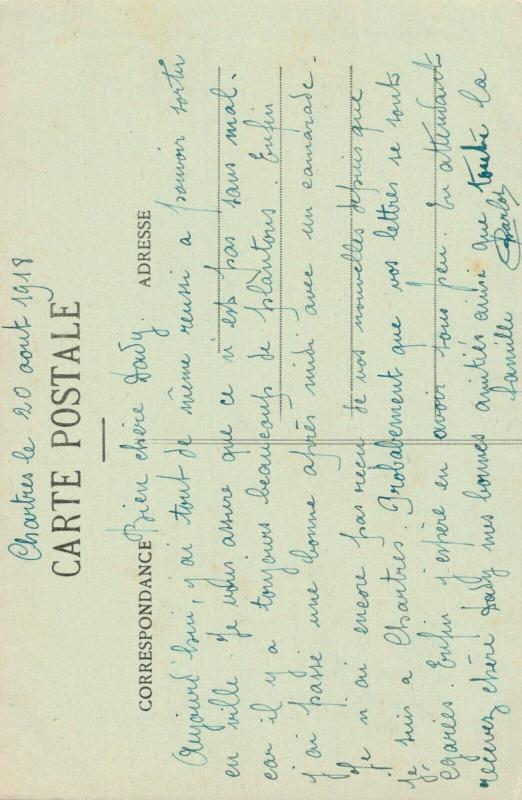 Chartres le 20 août 1918
CARTE POSTALE
CORRESPONDANCE
ADRESSE
Bien chère Dady.
Aujourd'hui, j'ai tout de même réussi a pouvoir sortir
en ville. Je vous assure que ce n'est pas sans mal.
car il y a toujours beaucoup de plantons. Enfin
j'ai passé une bonne après midi avec un camarade.
Je n'ai encore pas reçu de vos nouvelles depuis que
je suis a Chartres. Probablement que vos lettres se sont
égarées. Enfin j'espère en avoir sous peu. En attendant
recevez chère Dady mes bonnes amitiés ainsi que toute la
famille